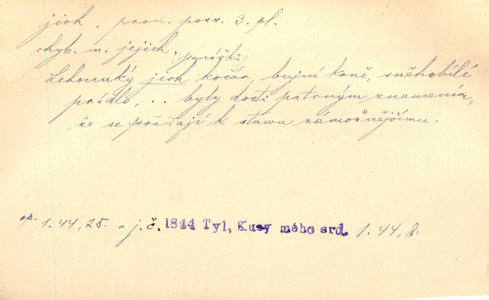 jich, pron. poss. 3. pl.
chyb. m. jejich.
(pražka)
Lehounký jich kočár, bujní koně, sněhobílé
prádlo, .. byly dosti patrným znamením,
že se počítají k stavu zámožnějšímu.
op. 1.44,25. a j. č. 1844 Tyl, Kusy mého srd. 1.44,8.